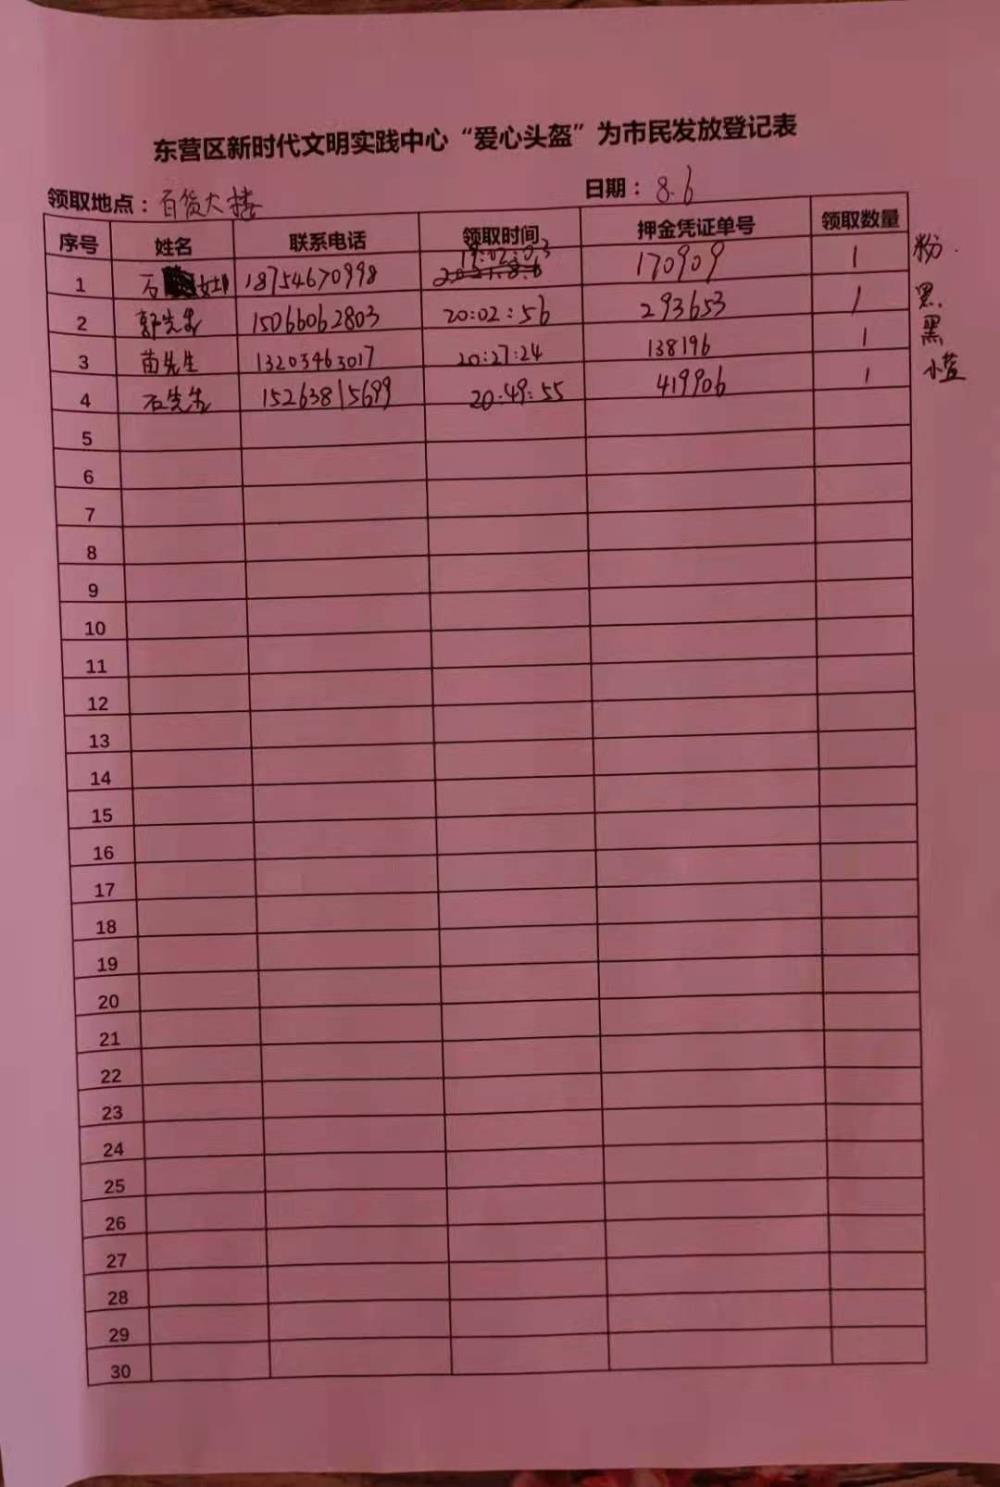 东营区新时代文明实践中心“爱心头盔”为市民发放登记表
领取地点：百货大楼 日期：8.6
序号 姓名 联系电话 领取时间 押金凭证单号 领取数量
1 石 女士 18754670998 19:02:03 170909 1 粉
2 郭先生 15066062803 20:02:56 293653 1 黑
3 苗先生 13203463017 20:27:24 138196 1 黑
4 石先生 15263815699 20:49:55 419906 1 小蓝
5
6
7
8
9
10
11
12
13
14
15
16
17
18
19
20
21
22
23
24
25
26
27
28
29
30